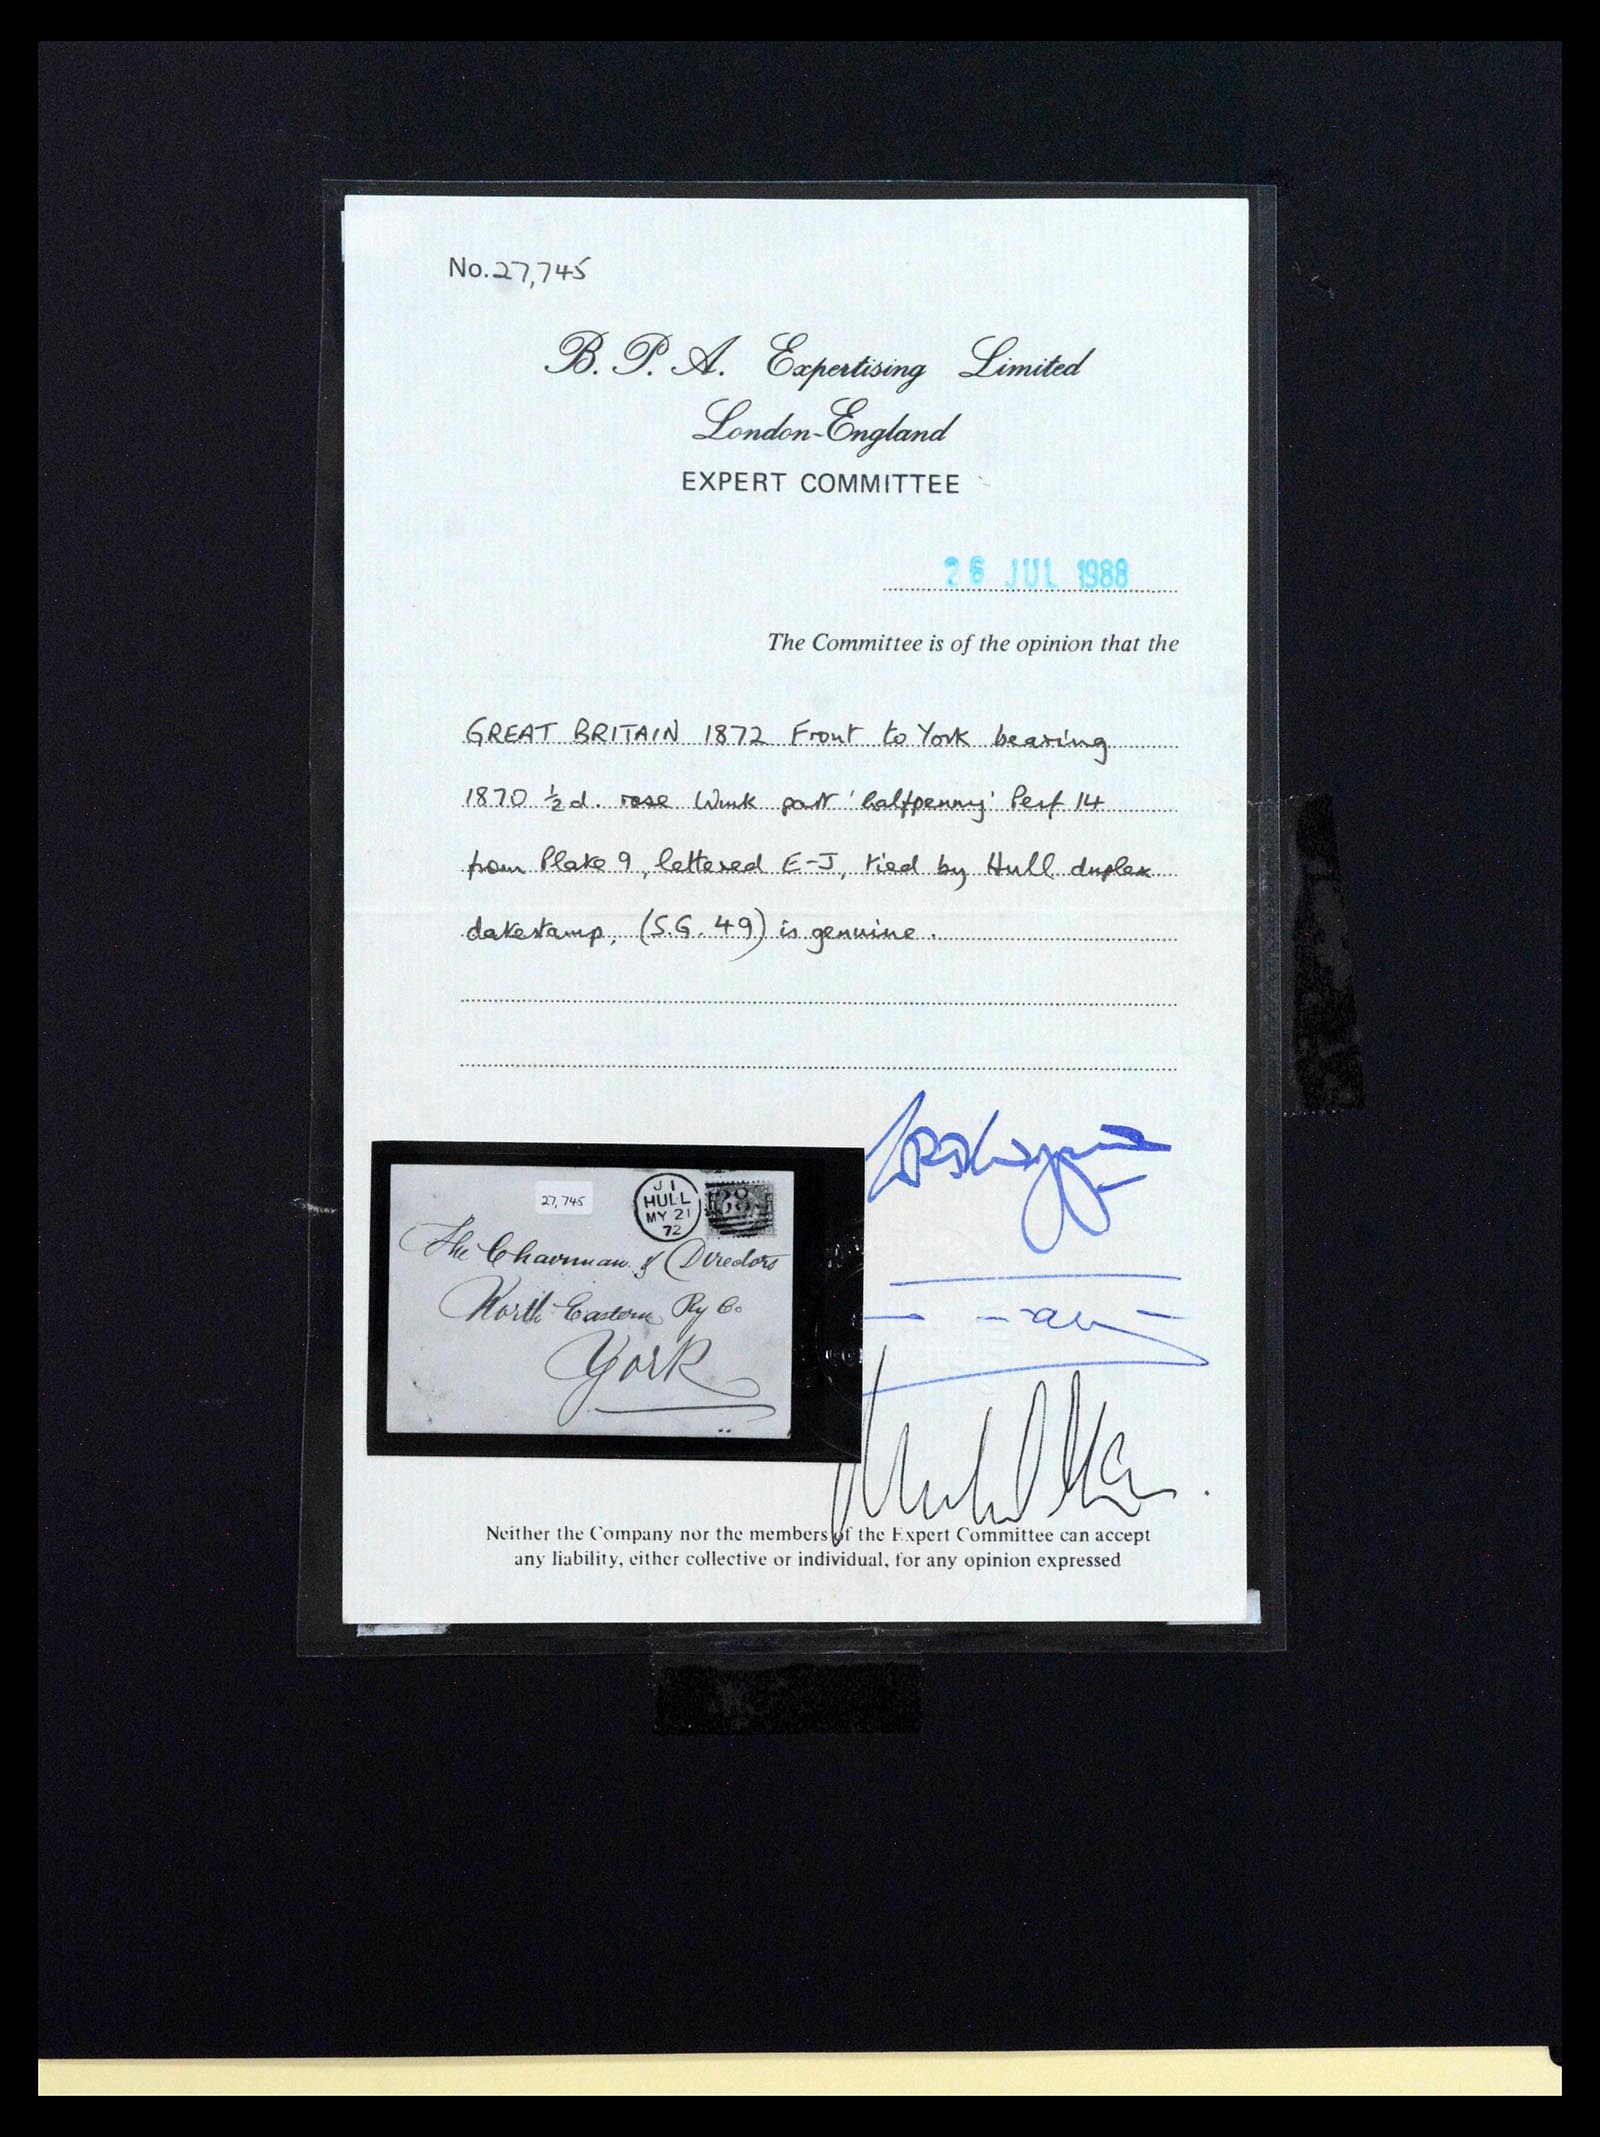 No. 27,745
B. P. A. Expertising Limited
London-England
EXPERT COMMITTEE
26 JUL 1988
The Committee is of the opinion that the
GREAT BRITAIN 1872 Front to York bearing
1870 ½d. rose Wmk part 'halfpenny' Perf 14
from Plate 9, lettered E-J, tied by Hull duplex
datestamp, (S.G. 49) is genuine.
27,745
J 1
HULL
MY 21
72
The Chairman & Directors
North Eastern Ry Co
York
Neither the Company nor the members of the Expert Committee can accept
any liability, either collective or individual, for any opinion expressed